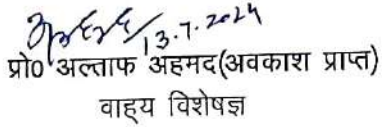 13.7.2024
प्रो0 अल्ताफ अहमद(अवकाश प्राप्त)
वाह्य विशेषज्ञ